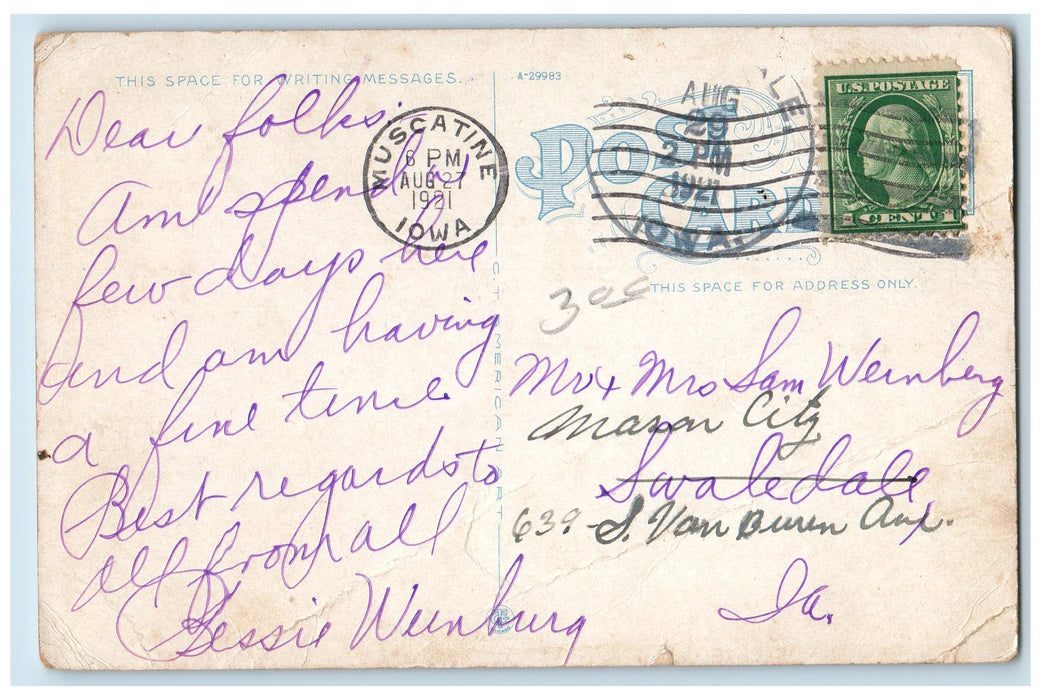 THIS SPACE FOR WRITING MESSAGES.
A-29983
POST CARD
THIS SPACE FOR ADDRESS ONLY.
MUSCATINE
6 PM
AUG 27
1921
IOWA
AUG
29
2 PM
1921
IOWA.
U.S. POSTAGE
1 CENT 1
Dear folks.
Am spending
few days here
and am having
a fine time.
Best regards to
all from all
Bessie Weinburg
300
Mr + Mrs Sam Weinberg
Mason City
Swaledale
639 S. Van Buren Ave.
Ia.
C.T. AMERICAN ART